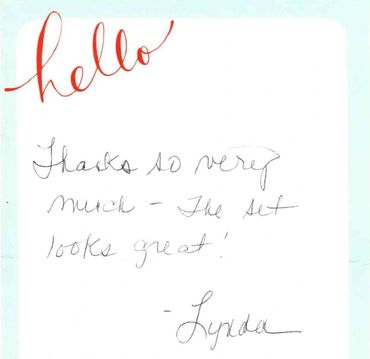 hello
Thanks so very
much - The set
looks great!
- Lynda